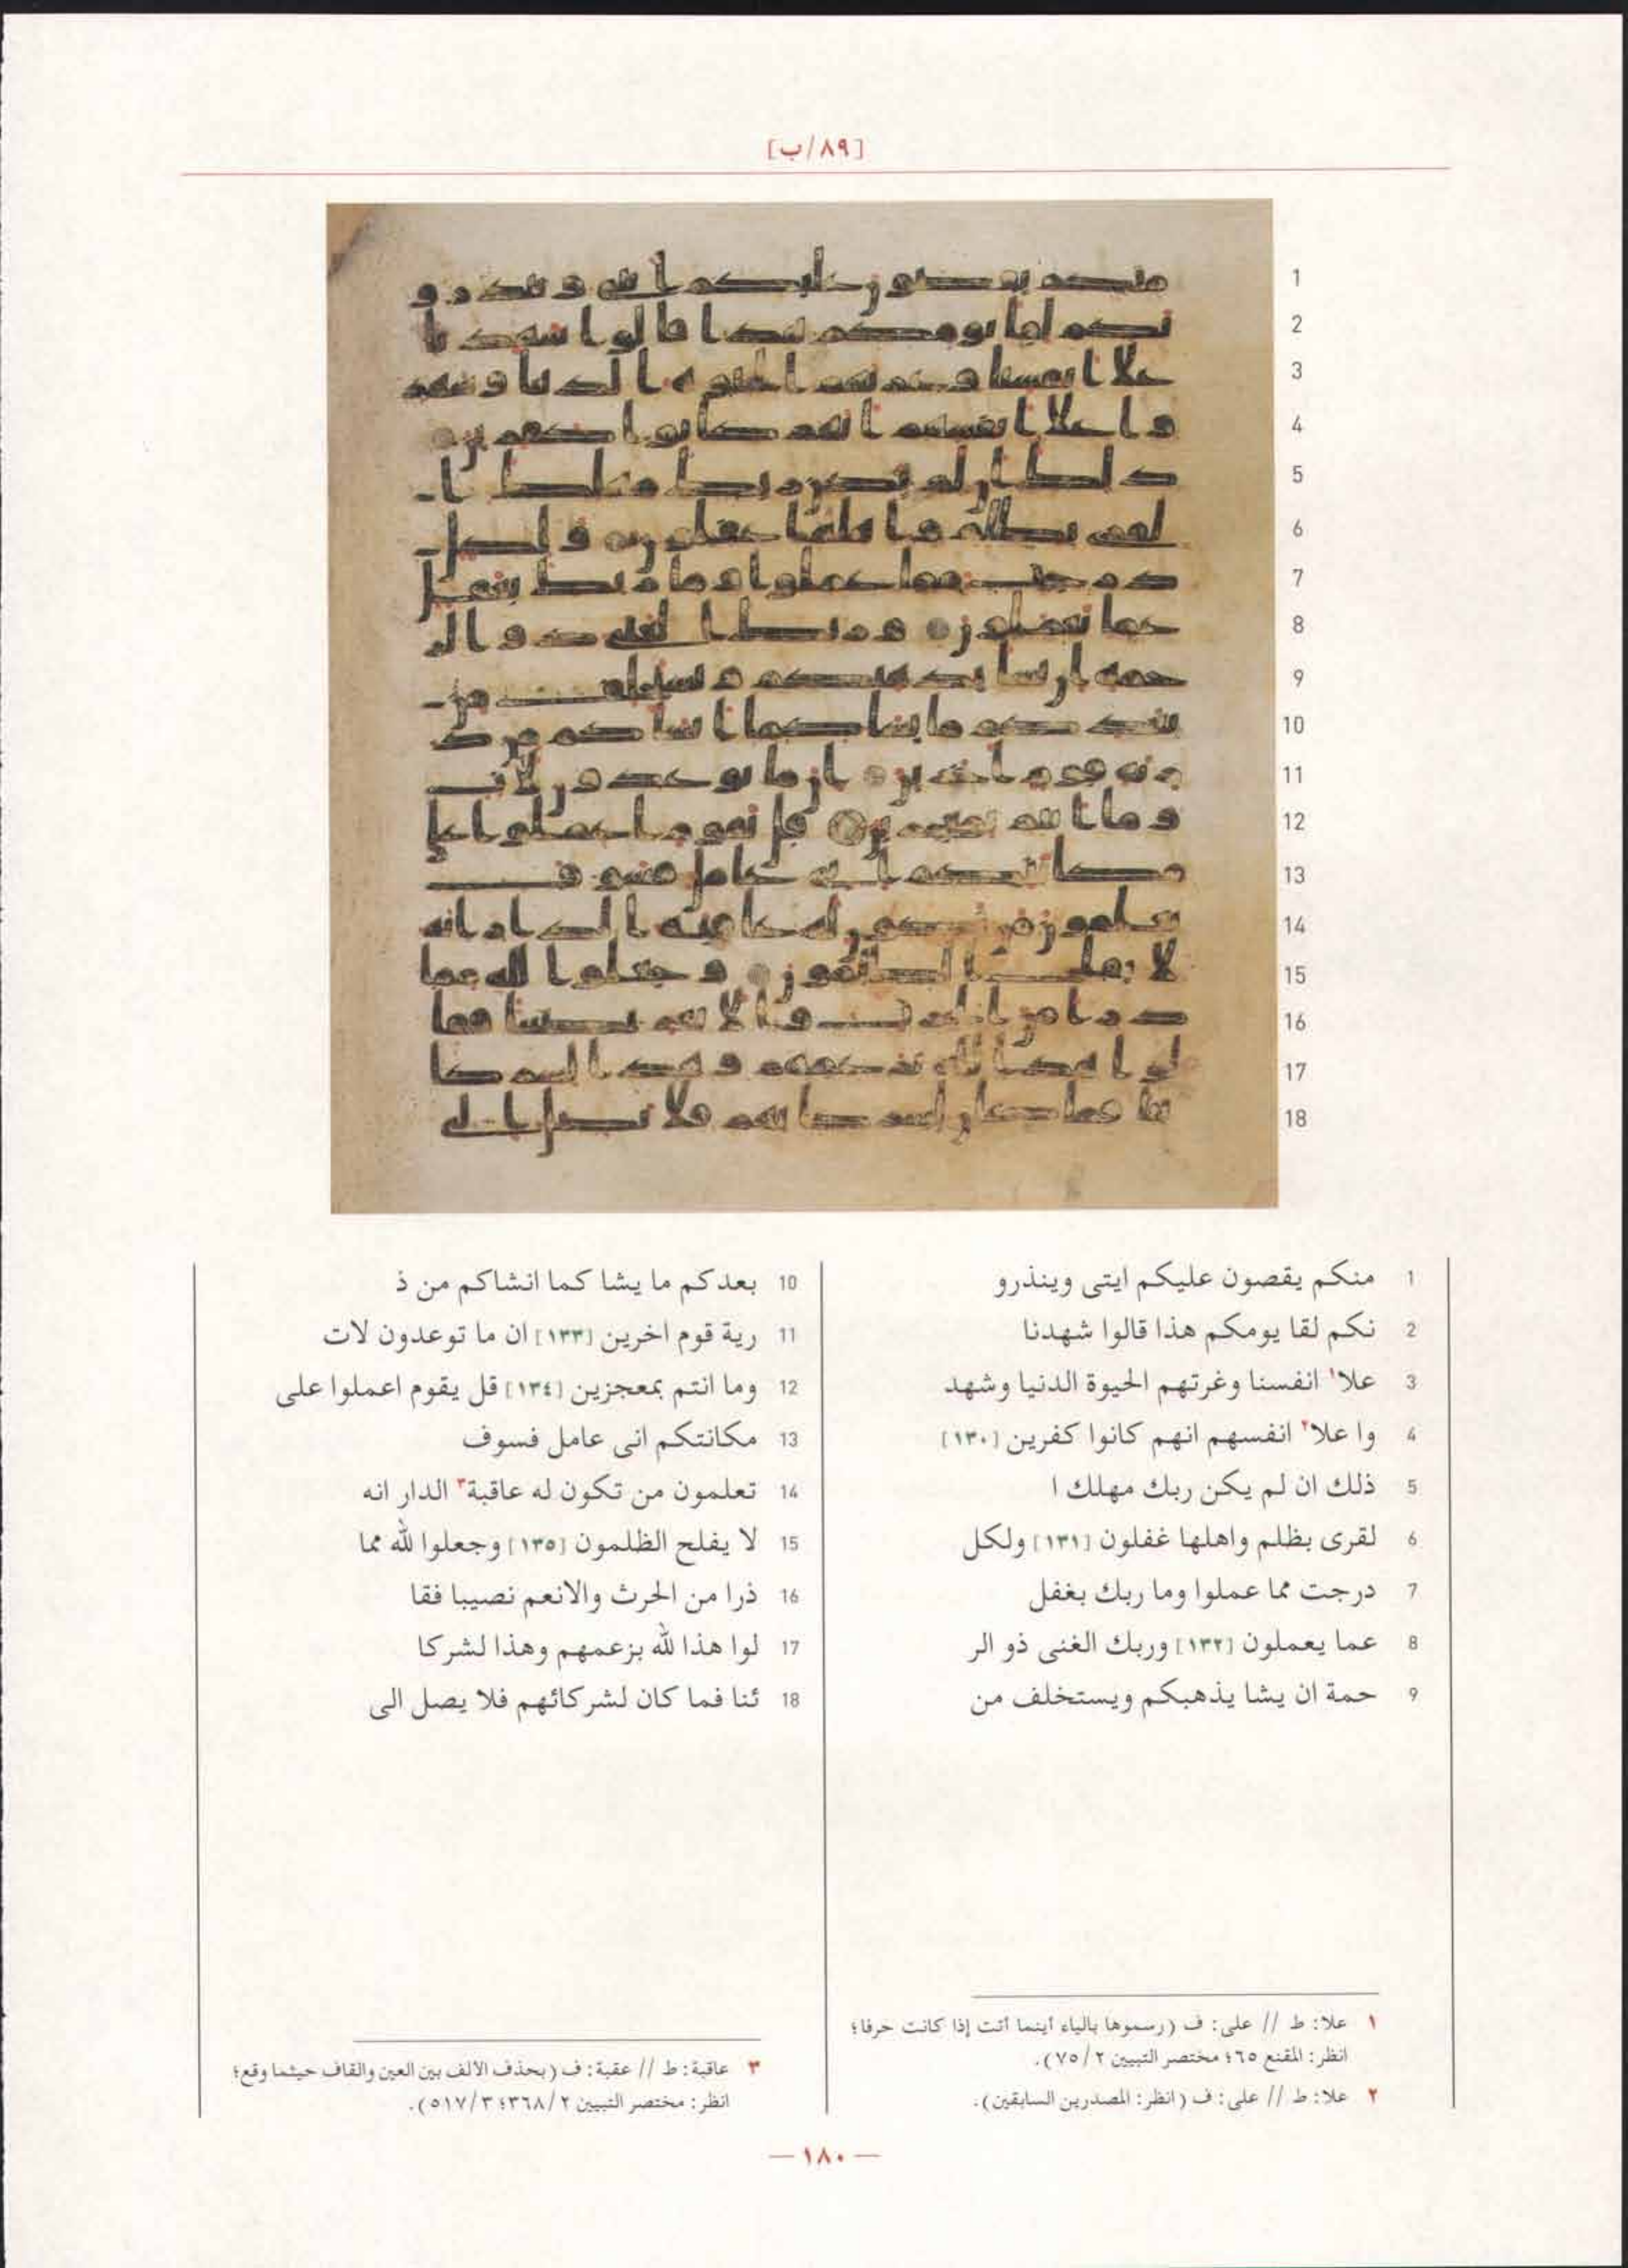 [٨٩/ب]
1 منكم يقصون عليكم ايتى وينذرو
2 نكم لقا يومكم هذا قالوا شهدنا
3 علا١ انفسنا وغرتهم الحيوة الدنيا وشهد
4 وا علا٢ انفسهم انهم كانوا كفرين [١٣٠]
5 ذلك ان لم يكن ربك مهلك ا
6 لقرى بظلم واهلها غفلون [١٣١] ولكل
7 درجت مما عملوا وما ربك بغفل
8 عما يعملون [١٣٢] وربك الغنى ذو الر
9 حمة ان يشا يذهبكم ويستخلف من
10 بعدكم ما يشا كما انشاكم من ذ
11 رية قوم اخرين [١٣٣] ان ما توعدون لات
12 وما انتم بمعجزين [١٣٤] قل يقوم اعملوا على
13 مكانتكم انى عامل فسوف
14 تعلمون من تكون له عاقبة٣ الدار انه
15 لا يفلح الظلمون [١٣٥] وجعلوا لله مما
16 ذرا من الحرث والانعم نصيبا فقا
17 لوا هذا لله بزعمهم وهذا لشركا
18 ئنا فما كان لشركائهم فلا يصل الى
١ علا: ط // على: ف (رسموها بالياء أينما أتت إذا كانت حرفا؛
انظر: المقنع ٦٥؛ مختصر التبيين ٢/ ٧٥).
٢ علا: ط // على: ف (انظر: المصدرين السابقين).
٣ عاقبة: ط // عقبة: ف (بحذف الألف بين العين والقاف حيثما وقع؛
انظر: مختصر التبيين ٢/ ٣٦٨؛ ٣/ ٥١٧).
— ١٨٠ —